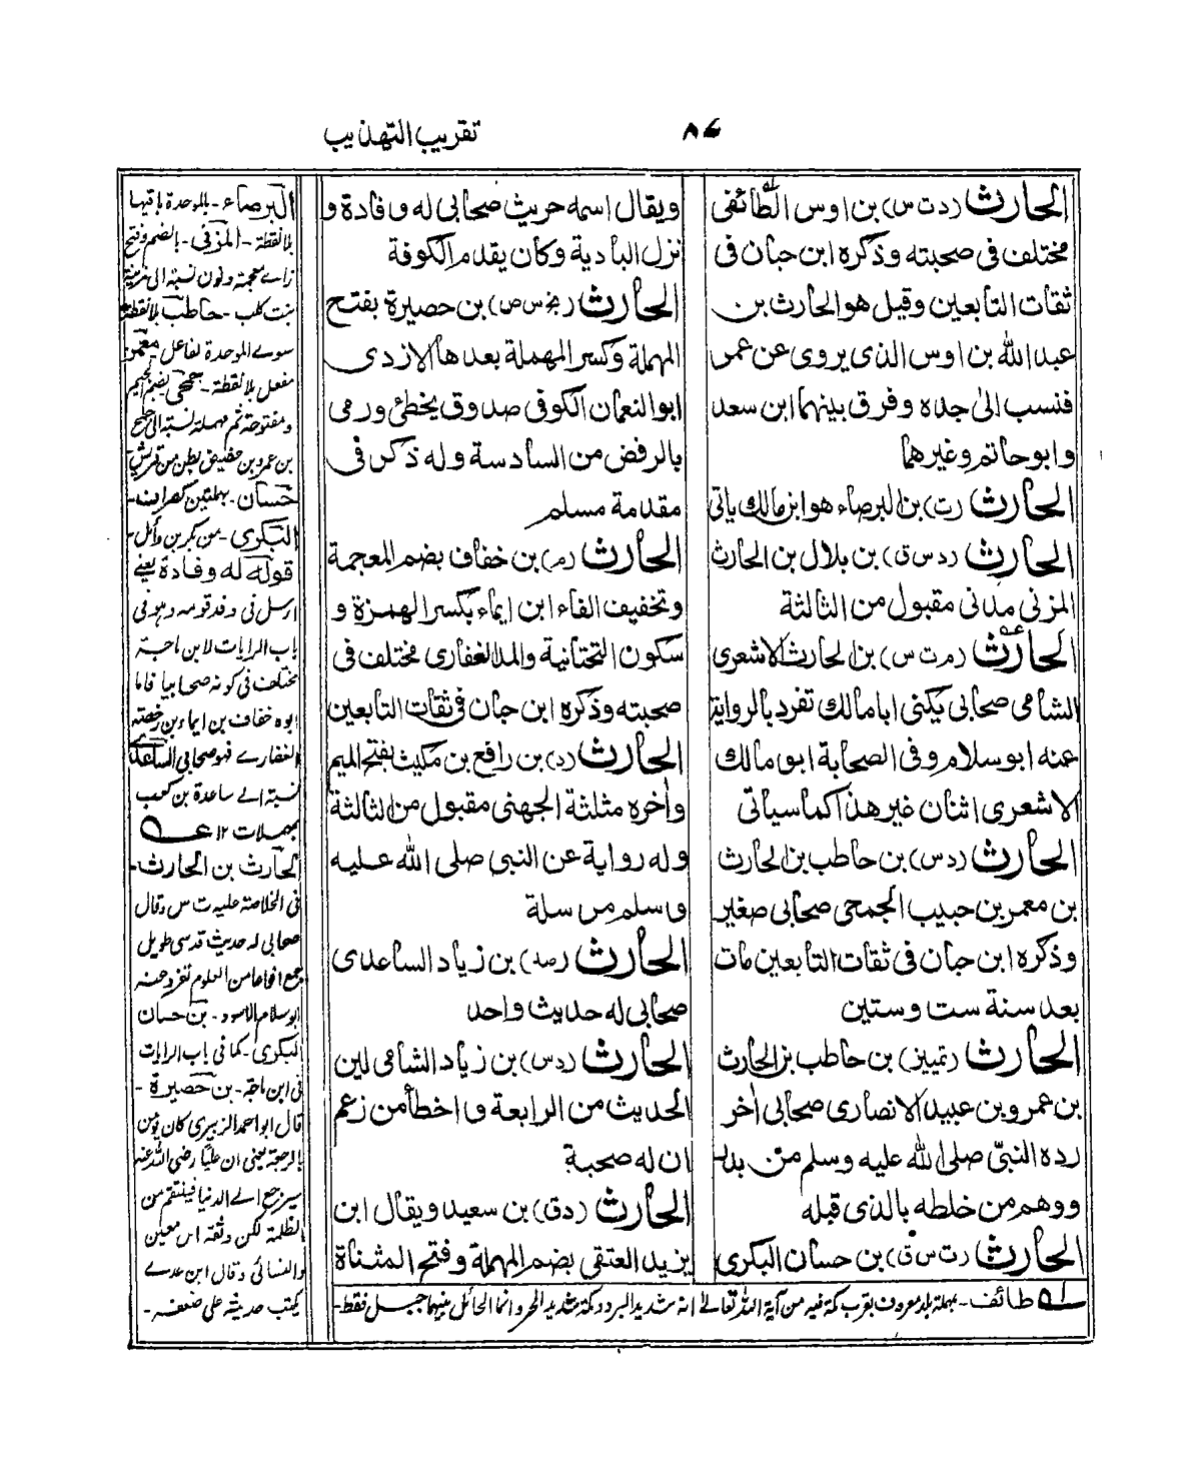 تقريب التهذيب
٨٤
الحارث (د ت س) بن اوس الطائفى
مختلف فى صحبته وذكره ابن حبان فى
ثقات التأبعين وقيل هو الحارث بن
عبد الله بن اوس الذى يروى عن عمر
فنسب الى جده وفرق بينهما ابن سعد
وابو حاتم وغيرهما
الحارث (ت) بن البرصاء هو ابن مالك ياتى
الحارث (د س ق) بن بلال بن الحارث
المزنى مدنى مقبول من الثالثة
الحارث (م ت س) بن الحارث الاشعرى
الشامى صحابى يكنى ابا مالك تفرد بالرواية
عنه ابو سلام وفى الصحابة ابو مالك
الاشعرى اثنان غير هذا كما سياتى
الحارث (د س) بن حاطب بن الحارث
بن معمر بن حبيب الجمحى صحابى صغير
وذكره ابن حبان فى ثقات التأبعين مات
بعد سنة ست وستين
الحارث (تمييز) بن حاطب بن الحارث
بن عمرو بن عبيد الانصارى صحابى أخر
رده النبى صلى الله عليه وسلم من بدر
ووهم من خلطه بالذى قبله
الحارث (ت س ق) بن حسان البكرى
ويقال اسمه حريث صحابى له وفادة و
نزل البأدية وكان يقدم الكوفة
الحارث (بخ س ص) بن حصيرة بفتح
المهملة وكسر المهملة بعدها الازدى
ابو النعمان الكوفى صدوق يخطئ ورمى
بالرفض من السادسة وله ذكر فى
مقدمة مسلم
الحارث (م) بن خفاف بضم المعجمة
وتخفيف الفاء ابن ايماء بكسر الهمزة و
سكون التحتانية والمد الغفارى مختلف فى
صحبته وذكره ابن حبان فى ثقات التأبعين
الحارث (د) بن رافع بن مكيث بفتح الميم
وأخره مثلثة الجهنى مقبول من الثالثة
وله رواية عن النبى صلى الله عليه
وسلم مرسلة
الحارث (صد) بن زياد الساعدى
صحابى له حديث واحد
الحارث (د س) بن زياد الشامى لين
الحديث من الرابعة واخطأ من زعم
ان له صحبة
الحارث (د ق) بن سعيد ويقال ابن
يزيد العتقى بضم المهملة وفتح المثناة
البرصاء - بالموحدة باقيها
بلا نقطة - المزنى - بالضم وفتح
زاے معجمة ونون نسبة الى مزينة
بنت كلب - حاطب بلا نقطة
سوے الموحدة لفاعل - معمر
مفعل بلا نقطة - جمحى بضم الجيم
ومفتوحة ثم مهملة نسبة الى جمح
بن عمرو بن هصيص بطن من قريش
حسان - بمهملتين
البكرى - من بكر بن وائل -
قوله له وفادة يعنے
ارسل فى وفد قومه وهو فى
باب الرايات لابن ماجة
مختلف فى كونه صحابيا فاما
ابوه خفاف بن ايماء بن رحضة
الغفارے فهو صحابى الساعدى
نسبة الے ساعدة بن كعب
بمهملات ١٢ عه
الحارث بن الحارث -
فى الخلاصة عليه ت س وقال
صحابى له حديث قدسى طويل
جمع انواعا من العلوم تفرد عنه
ابو سلام الاسود - بن حسان
البكرى - كما فى باب الرايات
فى ابن ماجة - بن حصيرة -
قال ابو احمد الزبيرى كان يؤمن
بالرجعة يعنى ان عليًا رضى الله عنه
سيرجع الے الدنيا فينتقم من
الظلمة لكن وثقه ابن معين
والنسائى وقال ابن عدے
يكتب حديثه على ضعفه -
له طائف - بمهملة بلد معروف بقرب مكة فيه من آية الله تعالى انه شديد البرد ومكة شديد الحر وانما الحائل بينهما جبل فقط -